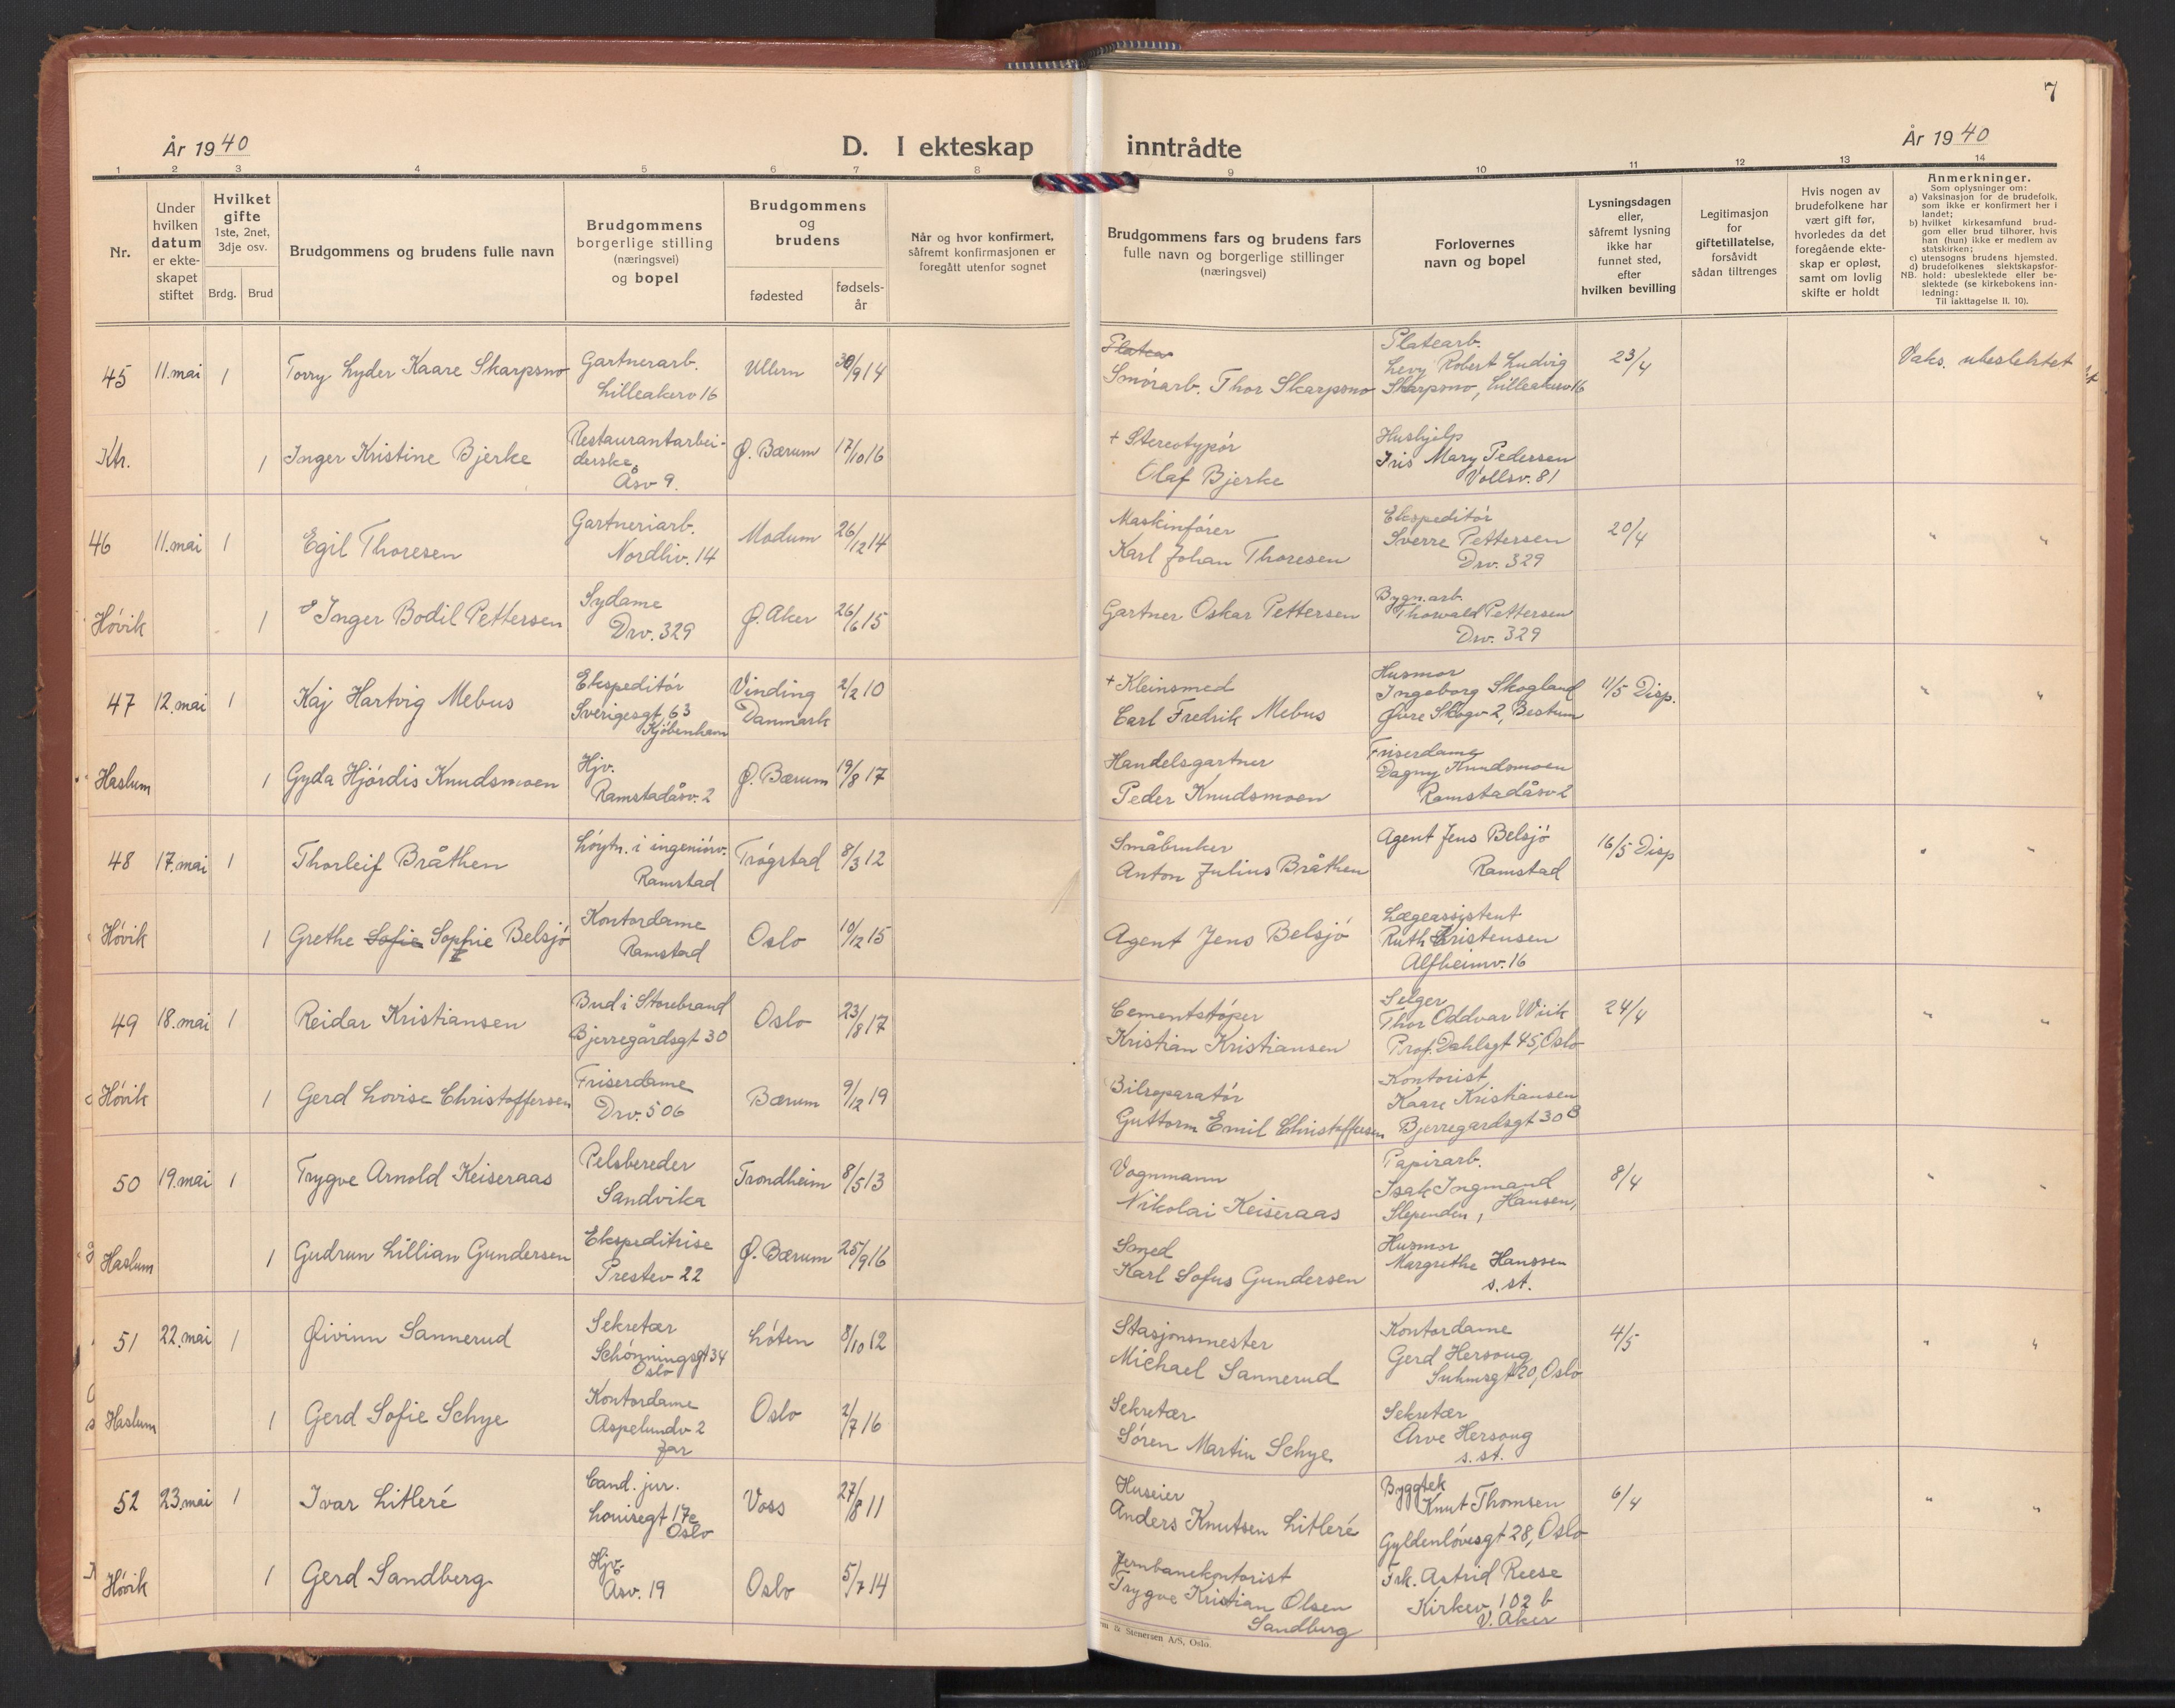 7
År 1940
D. I ekteskap inntrådte
År 1940
1 2 3 4 5 6 7 8 9 10 11 12 13 14
Nr.
Under hvilken datum er ekteskapet stiftet
Hvilket gifte 1ste, 2net, 3dje osv.
Brdg. Brud
Brudgommens og brudens fulle navn
Brudgommens borgerlige stilling (næringsvei) og bopel
Brudgommens og brudens
fødested
fødselsår
Når og hvor konfirmert, såfremt konfirmasjonen er foregått utenfor sognet
Brudgommens fars og brudens fars fulle navn og borgerlige stillinger (næringsvei)
Forlovernes navn og bopel
Lysningsdagen eller, såfremt lysning ikke har funnet sted, efter hvilken bevilling
Legitimasjon for giftetillatelse, forsåvidt sådan tiltrenges
Hvis nogen av brudefolkene har vært gift før, hvorledes da det foregående ekteskap er opløst, samt om lovlig skifte er holdt
Anmerkninger.
Som oplysninger om:
a) Vaksinasjon for de brudefolk, som ikke er konfirmert her i landet;
b) hvilket kirkesamfund brudgom eller brud tilhører, hvis han (hun) ikke er medlem av statskirken;
c) utensogns brudens hjemsted.
d) brudefolkenes slektskapsforhold: ubeslektede eller beslektede (se kirkebokens innledning:
NB. Til iakttagelse II. 10).
45 11.mai 1 Torry Lyder Kaare Skarpsno
Gartnerarb.
Lilleakerv 16
Ullern 30/9 14
Platea
Smørarb. Thor Skarpsno
Platearb.
Levy Robert Ludvig
Skarpsno, Lilleakerv 16
23/4
Vaks. ubeslektet
Ktr. 1 Inger Kristine Bjerke
Restaurantarbei-
derske,
Åsv 9.
Ø. Bærum 17/10 16
+ Stereotypør
Olaf Bjerke
Hushjelp
Iris Mary Pedersen
Vollsv. 81
46 11.mai 1 Egil Thoresen
Gartneriarb.
Nordliv. 14
Modum 26/12 14
Maskinfører
Karl Johan Thoresen
Ekspeditør
Sverre Pettersen
Drv. 329
20/4 " "
Høvik 1 Inger Bodil Pettersen
Sydame
Drv. 329
Ø. Aker 26/6 15
Gartner Oskar Pettersen
Bygn.arb.
Thorvald Pettersen
Drv. 329
47 12.mai 1 Kaj Hartvig Mebus
Ekspeditør
Sverigesgt 63
Kjøbenhavn
Vinding
Danmark
2/2 10
+ Kleinsmed
Carl Fredrik Mebus
Husmor
Ingeborg Skogland
Øvre Skogv 2, Bestum
11/5 Disp. " "
Haslum 1 Gyda Hjørdis Knudsmoen
Hjv.
Ramstadåsv. 2
Ø. Bærum 19/8 17
Handelsgartner
Peder Knudsmoen
Friserdame
Dagny Knudsmoen
Ramstadåsv 2
48 17.mai 1 Thorleif Bråthen
Løytn. i ingeniørv.
Ramstad
Trøgstad 8/3 12
Småbruker
Anton Julius Bråthen
Agent Jens Belsjø
Ramstad
16/5 Disp " "
Høvik 1 Grethe Sofie Sophie Belsjø
Kontordame
Ramstad
Oslo 10/12 15
Agent Jens Belsjø
Lægeassistent
Ruth Kristensen
Alfheimv. 16
49 18.mai 1 Reidar Kristiansen
Bud i Storebrand
Bjerregårdsgt 30
Oslo 23/8 17
Cementstøper
Kristian Kristiansen
Selger
Thor Oddvar Wiik
Prof. Dahlsgt 45, Oslo
24/4 " "
Høvik 1 Gerd Lovise Christoffersen
Friserdame
Drv. 506
Bærum 9/12 19
Bilreparatør
Guttorm Emil Christoffersen
Kontorist
Kaare Kristiansen
Bjerregardsgt 30 B
50 19.mai 1 Trygve Arnold Keiseraas
Pelsbereder
Sandvika
Trondheim 8/5 13
Vognmann
Nikolai Keiseraas
Papirarb.
Isak Ingmand
Slependen, Hansen,
8/4 " "
Haslum 1 Gudrun Lillian Gundersen
Ekspeditrise
Prestev 22
Ø. Bærum 25/9 16
Smed
Karl Sofus Gundersen
Husmor
Margrethe Hanssen
s. st.
51 22.mai 1 Øivinn Sannerud
Sekretær
Schønningsgt 34
Oslo
Løten 8/10 12
Stasjonsmester
Michael Sannerud
Kontordame
Gerd Hersoug
Suhmsgt 20, Oslo
4/5 " "
Haslum 1 Gerd Sofie Schye
Kontordame
Aspelundv 2
Jar
Oslo 2/7 16
Sekretær
Søren Martin Schye
Sekretær
Arve Hersoug
s. st.
52 23.mai 1 Ivar Litleré
Cand. jur.
Louisegt 17e
Oslo
Voss 27/8 11
Huseier
Anders Knutsen Litleré
Byggtek
Knut Thomsen
Gyldenløvesgt 28, Oslo
6/4 " "
Høvik 1 Gerd Sandberg
Hjv.
Åsv. 19
Oslo 5/7 14
Jernbanekontorist
Trygve Kristian Olsen
Sandberg
Frk. Astrid Reese
Kirkev. 102 b
V. Aker
& Stenersen A/S, Oslo.